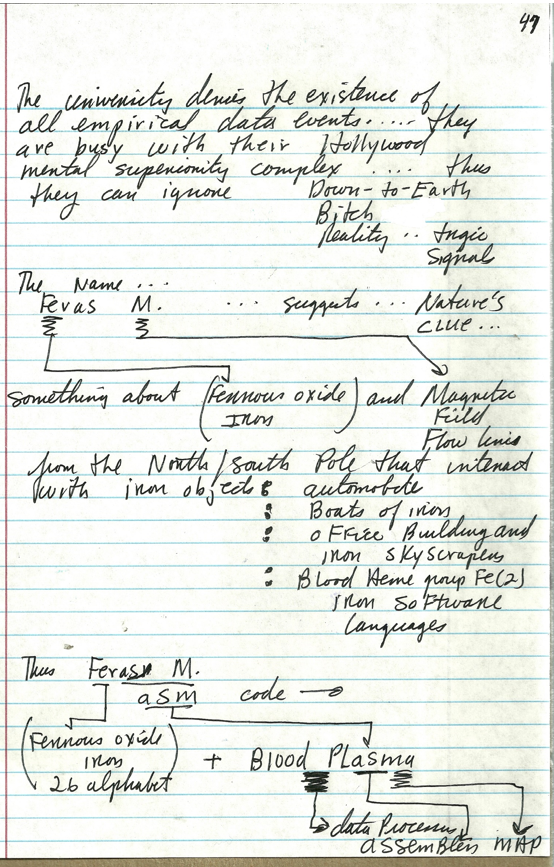 47
The university denies the existence of
all empirical data events..... they
are busy with their Hollywood
mental superiority complex .... thus
they can ignore Down-to-Earth
Bitch
Reality .. tragic
Signals
The Name ...
Feras M. ... suggests ... Nature's
CLUE...
something about (Ferrous oxide) and Magnetic
Iron Field
Flow lines
from the North/South Pole that interact
with iron objects: automobile
: Boats of iron
: office Building and
iron skyscrapers
: Blood Heme group Fe(2)
iron software
languages
Thus Feras M.
asm code →
(Ferrous oxide
iron
26 alphabet) + Blood Plasma
data Processor
assembler MAP